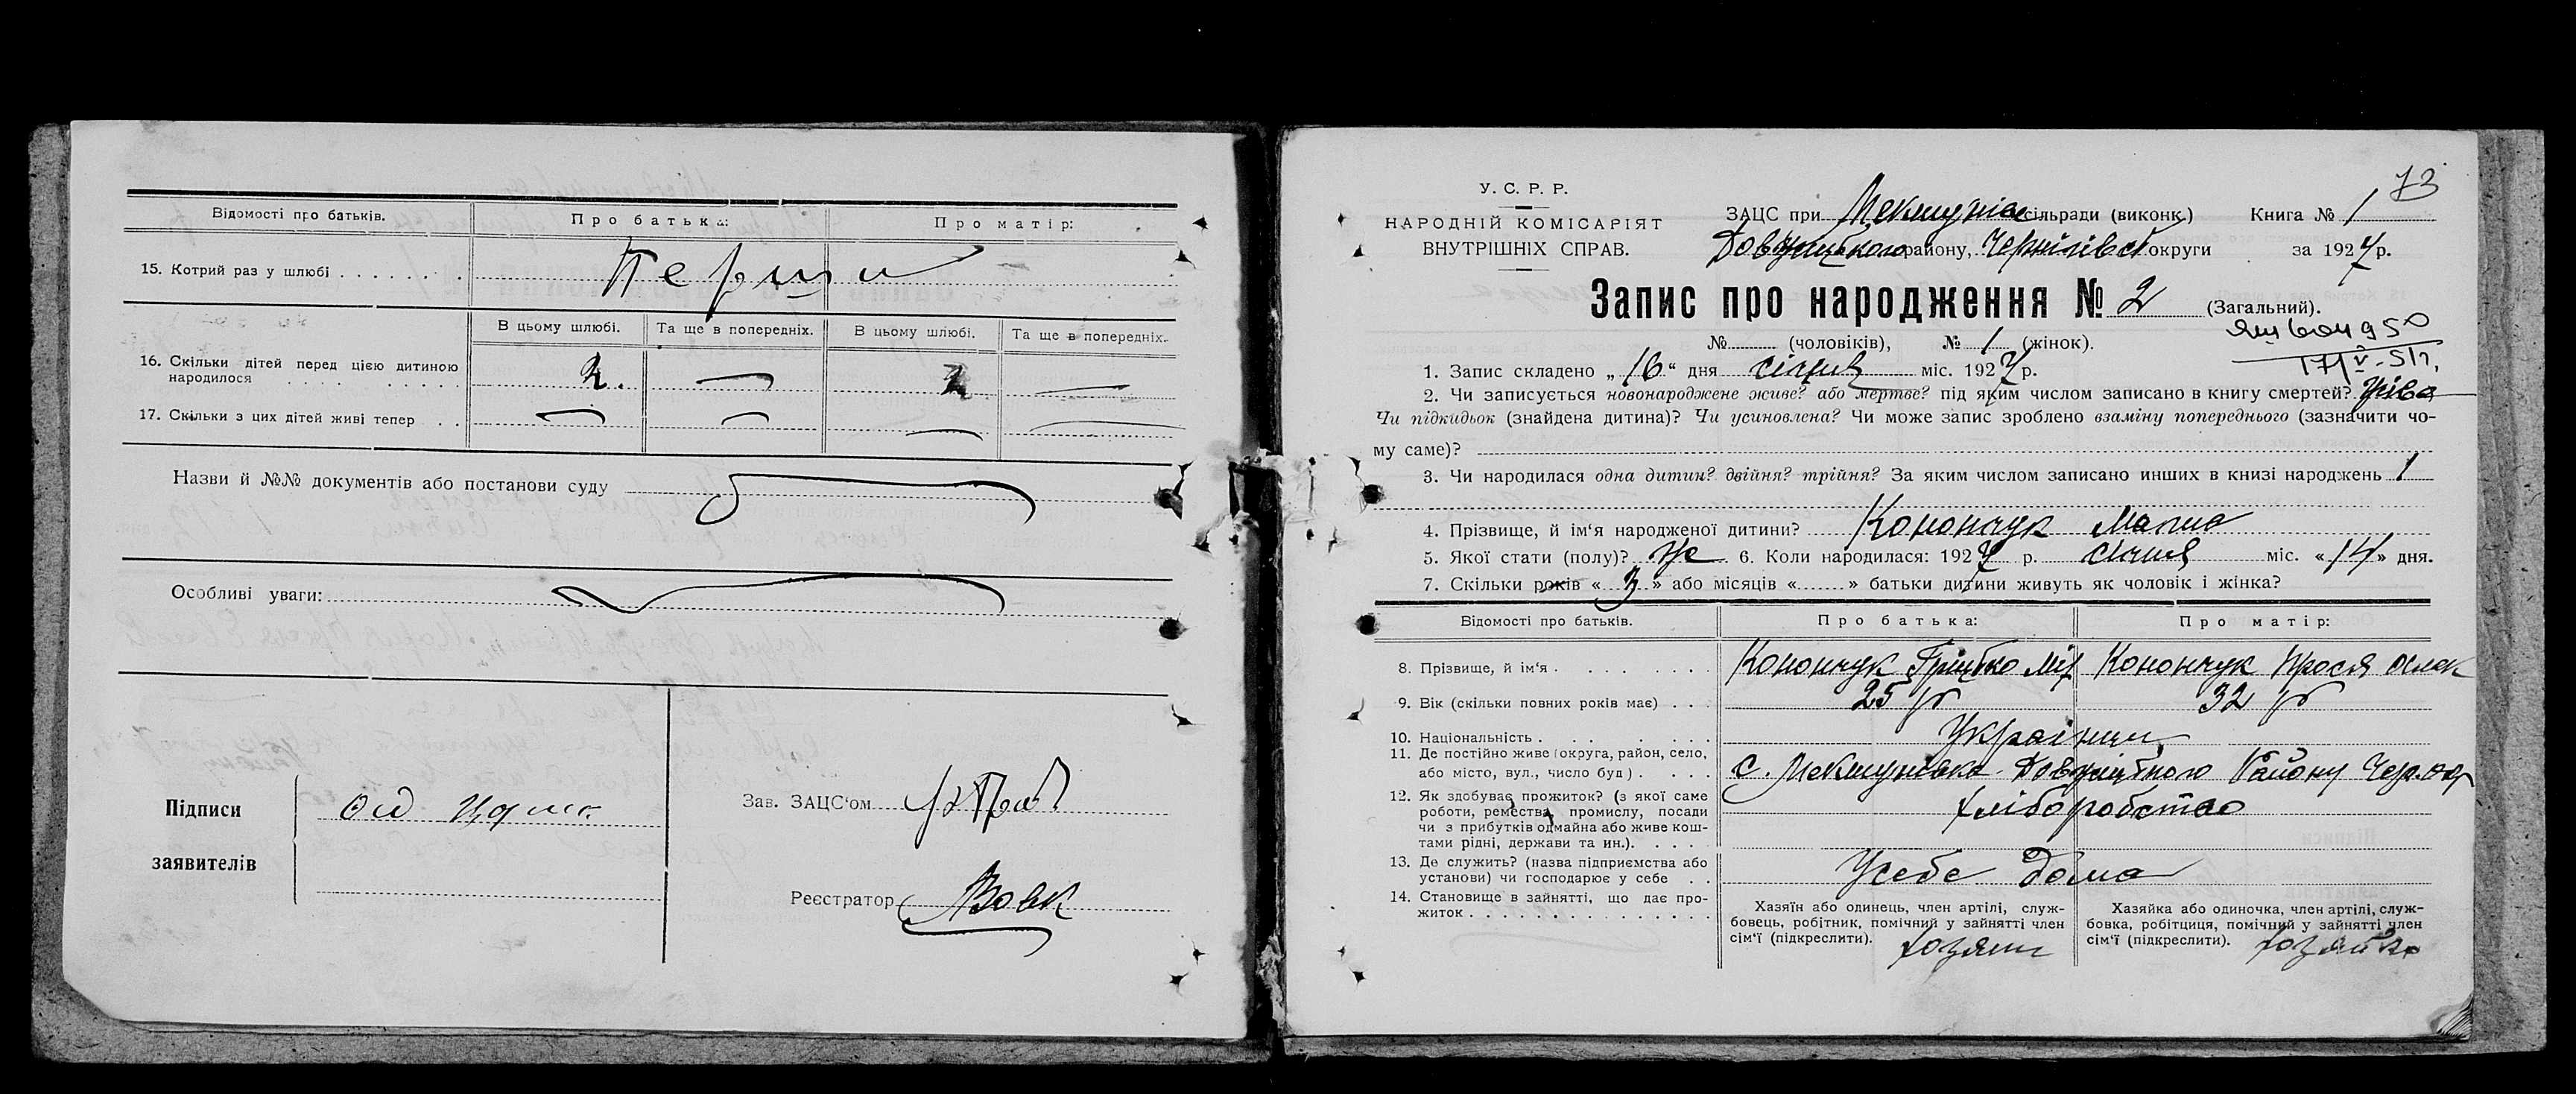 Відомості про батьків. Про батька: Про матір:
15. Котрий раз у шлюбі Перши
В цьому шлюбі. Та ще в попередніх. В цьому шлюбі. Та ще в попередніх.
16. Скільки дітей перед цією дитиною
народилося 2. — 2 —
17. Скільки з цих дітей живі тепер — — — —
Назви й №№ документів або постанови суду
Особливі уваги:
Підписи
заявителів
Зав. ЗАЦС'ом
Реєстратор Вовк
73
У. С. Р. Р.
НАРОДНІЙ КОМІСАРІЯТ
ВНУТРІШНІХ СПРАВ.
ЗАЦС при сільради (виконк.) Книга № 1
району, Чернігівсь округи за 1927 р.
Запис про народження № 2 (Загальний).
№ (чоловіків), № 1 (жінок).
1. Запис складено „16" дня січня міс. 1927 р.
2. Чи записується новонароджене живе? або мертве? під яким числом записано в книгу смертей? жива
Чи підкидьок (знайдена дитина)? Чи усиновлена? Чи може запис зроблено взаміну попереднього (зазначити чо-
му саме)?
3. Чи народилася одна дитин? двійня? трійня? За яким числом записано инших в книзі народжень 1
4. Прізвище, й ім'я народженої дитини? Конончук
5. Якої стати (полу)? же 6. Коли народилася: 1927 р. січня міс. «14» дня.
7. Скільки років «3» або місяців « » батьки дитини живуть як чоловік і жінка?
Відомості про батьків. Про батька: Про матір:
8. Прізвище, й ім'я Конончук Грицько Мих Конончук Прося
9. Вік (скільки повних років має) 25 р 32 р
10. Національність Українци
11. Де постійно живе (округа, район, село,
або місто, вул., число буд) с. району Чер. окр
12. Як здобуває прожиток? (з якої саме
роботи, ремества, промислу, посади хліборобство
чи з прибутків одмайна або живе кош-
тами рідні, держави та ин.).
13. Де служить? (назва підприємства або
установи) чи господарює у себе Усебе дома
14. Становище в зайнятті, що дає про-
житок
Хазяїн або одинець, член артілі, служ-
бовець, робітник, помічний у зайнятті член
сім'ї (підкреслити). хозяин
Хазяйка або одиночка, член артілі, служ-
бовка, робітниця, помічний у зайнятті член
сім'ї (підкреслити). хозяйка